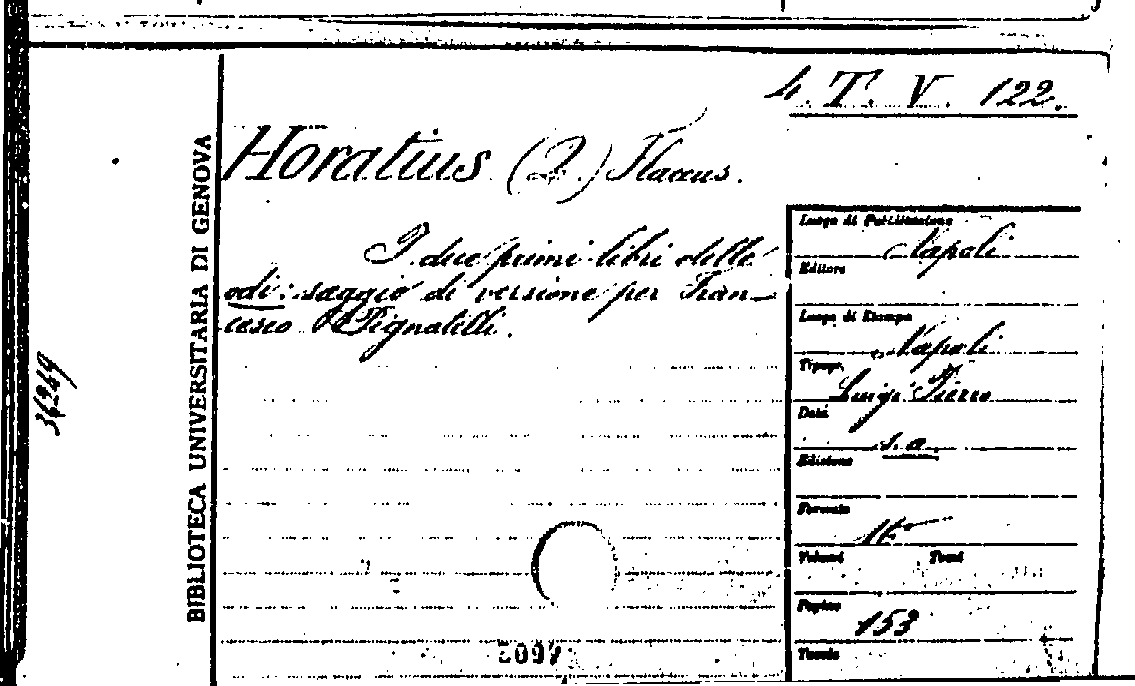 4. T. V. 122.
Horatius (Q.) Flaccus.
I due primi libri delle
odi: saggio di versione per Fran-
cesco Pignatelli.
BIBLIOTECA UNIVERSITARIA DI GENOVA
36249
Luogo di Pubblicazione
Napoli
Editore
Luogo di Stampa
Napoli
Tipogr.
Luigi Pierro
Data
s. a.
Edizione
Formato
16°
Volumi Tomi
Pagine
153
Tavole